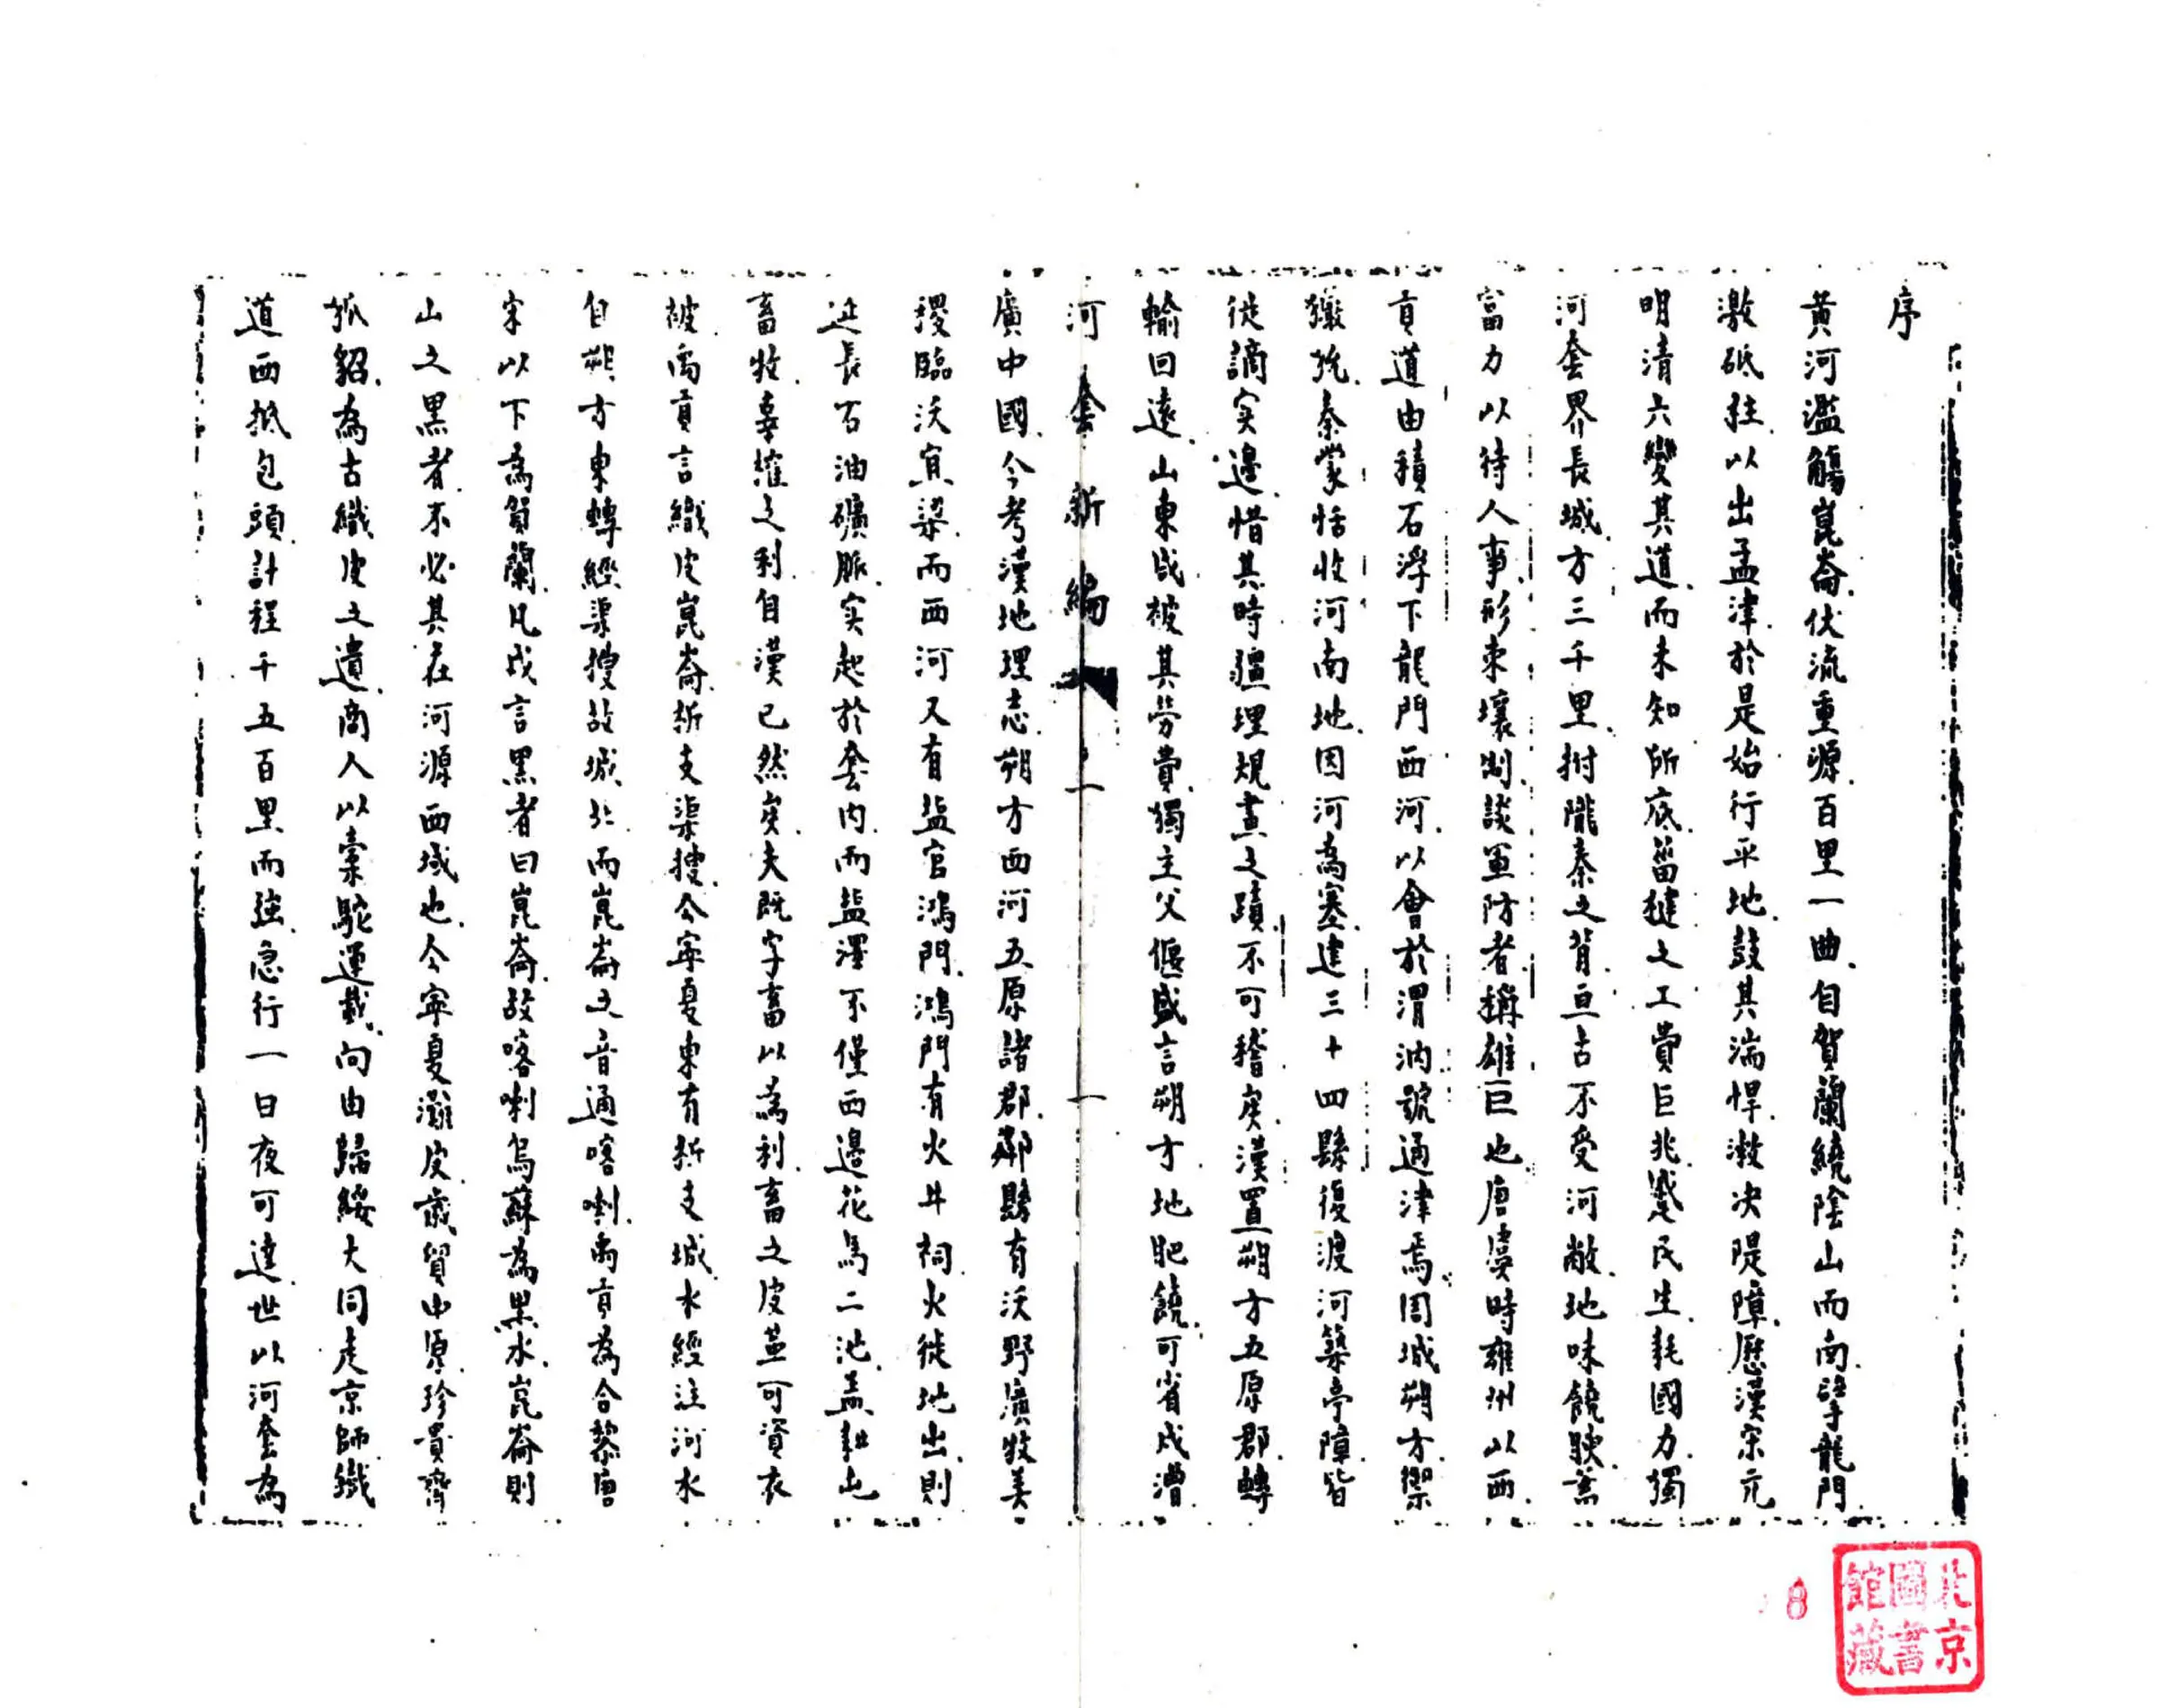 序
黃河濫觴崑崙伏流重源百里一曲自賀蘭繞陰山而南擘龍門
激砥柱以出孟津於是始行平地鼓其湍悍潄决隄障歷漢宋元
明清六變其道而未知所底菑揵之工費巨兆蹙民生耗國力獨
河套界長城方三千里拊隴秦之背亘古不受河敝地味饒腴蓄
富力以待人事形束壤制談軍防者稱雄巨也唐虞時雍州以西
貢道由積石浮下龍門西河以會於渭汭號通津焉周城朔方禦
玁狁秦蒙恬收河南地因河為塞建三十四縣復渡河築亭障皆
徙謫实邊惜其時疆理規畫之蹟不可稽矣漢置朔方五原郡轉
輸回遠山東咸被其勞費獨主父偃盛言朔方地肥饒可省戍漕
河套新編 序 一
廣中國今考漢地理志朔方西河五原諸郡鄰縣有沃野廣牧美
稷臨沃宜梁而西河又有盐官鴻門鴻門有火井祠火從地出則
延長石油礦脈实起於套内而盐澤不僅西邊花馬二池盖耕屯
畜牧辜搉之利自漢已然矣夫既字畜以為利畜之皮並可資衣
被禹貢言織皮崑崙析支渠搜今寧夏東有析支城水經注河水
自朔方東轉經渠搜故城北而崑崙之音通喀喇禹貢為合黎唐
宋以下為賀蘭凡戎言黑者曰崑崙故喀喇烏蘇為黑水崑崙則
山之黑者不必其在河源西域也今寧夏灘皮歲貿中原珍貴齊
狐貂為古織皮之遺商人以橐駝運載向由歸綏大同走京師織
道西抵包頭計程千五百里而強急行一日夜可達世以河套為
8
北京圖書館藏